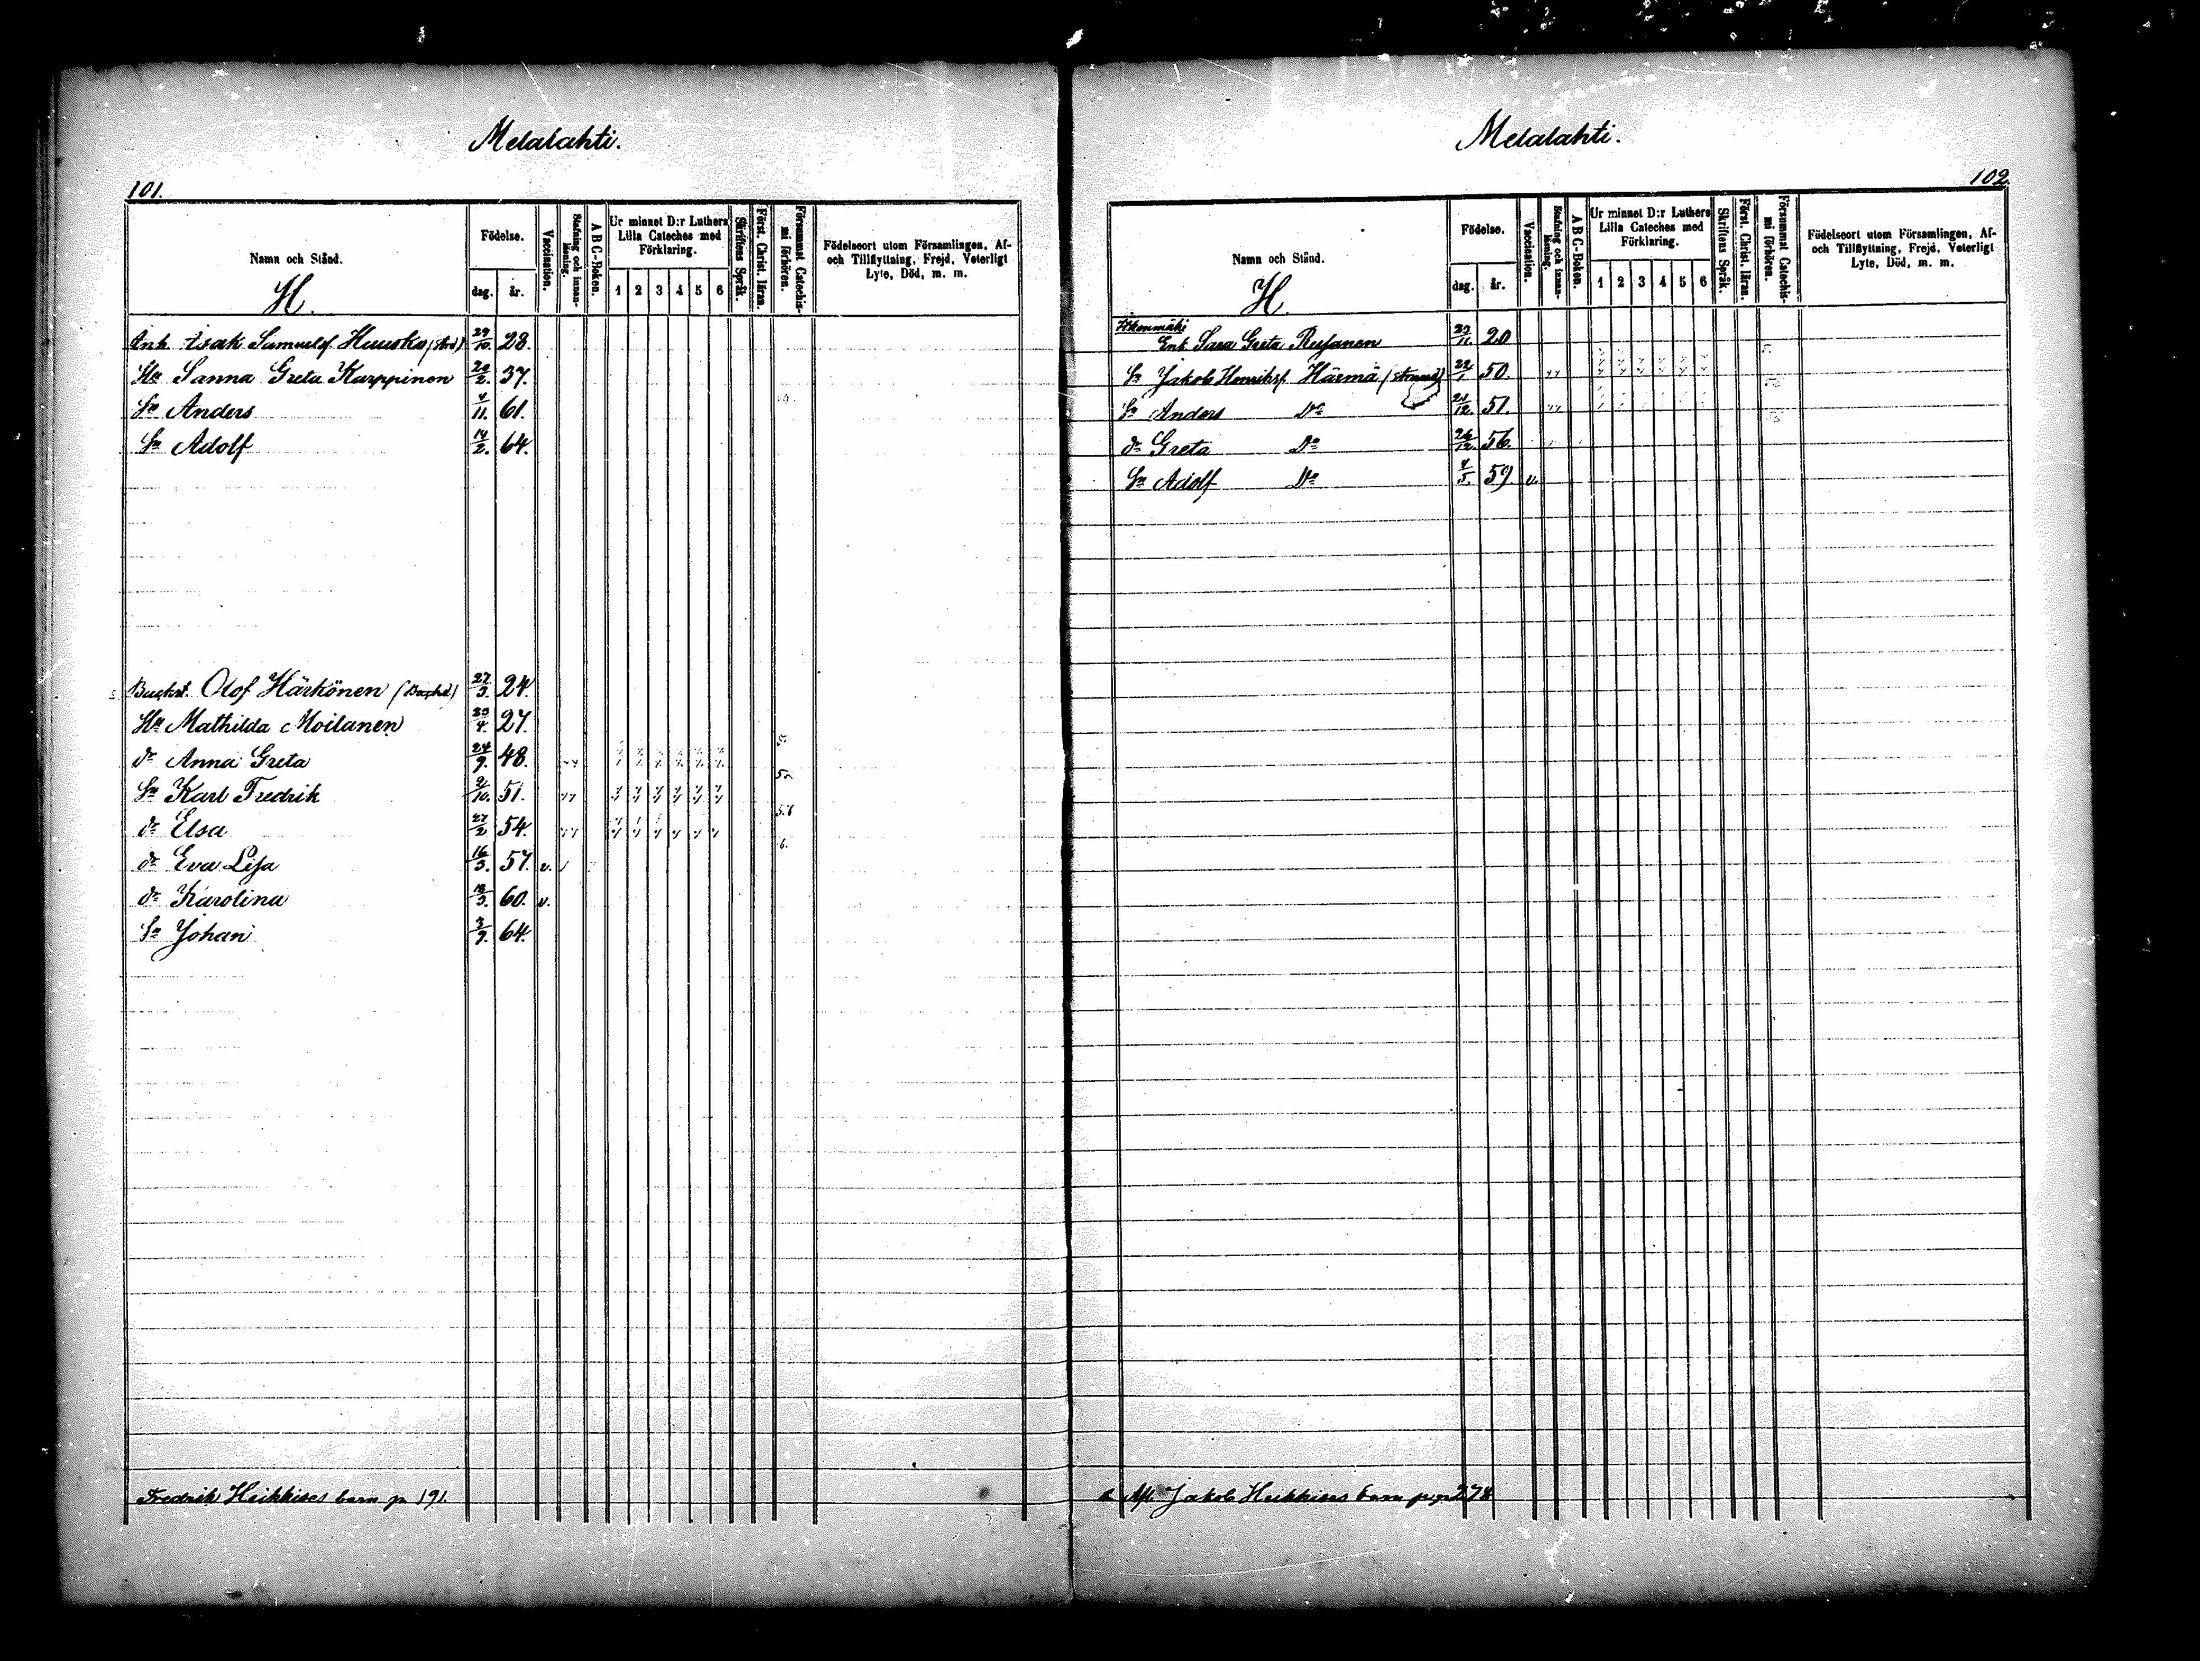 Melalahti.
101.
Namn och Stånd.
H.
Födelse.
dag. år.
Vaccination.
Stafning och innanläsning.
A B C-Boken.
Ur minnet D:r Luthers Lilla Cateches med Förklaring.
1 2 3 4 5 6
Skriftens Språk.
Först. Christ. läran.
Försummat Catechismi förhören.
Födelseort utom Församlingen, Af- och Tillflyttning, Frejd, Veterligt Lyte, Död, m. m.
Inh. Isak Samuelsf. Huusko 29/10. 28.
Hu Sanna Greta Karppinen 20/2. 37.
Sn Anders 4/11. 61.
Sn Adolf 14/2. 64.
Olof Härkönen 27/3. 24.
Hu Mathilda Moilanen 20/4. 27.
dr Anna Greta 24/9. 48.
Sn Karl Fredrik 2/10. 51.
dr Elsa 27/2 54.
dr Eva Lisa 16/3. 57. v.
dr Karolina 18/3. 60. v.
Sn Johan 3/9. 64.
Fredrik Heikkises barn p 191.
Melalahti.
102.
Namn och Stånd.
H.
Födelse.
dag. år.
Vaccination.
Stafning och innanläsning.
A B C-Boken.
Ur minnet D:r Luthers Lilla Cateches med Förklaring.
1 2 3 4 5 6
Skriftens Språk.
Först. Christ. läran.
Försummat Catechismi förhören.
Födelseort utom Församlingen, Af- och Tillflyttning, Frejd, Veterligt Lyte, Död, m. m.
Enk. Sara Greta Rusanen 20
Sn Jakob Henriksf. Härmä 22/1 50.
Sn Anders Do 21/12. 51.
dr Greta Do 26/12. 56.
Sn Adolf Do 4/5. 59. v.
Jakob Heikkises barn 278